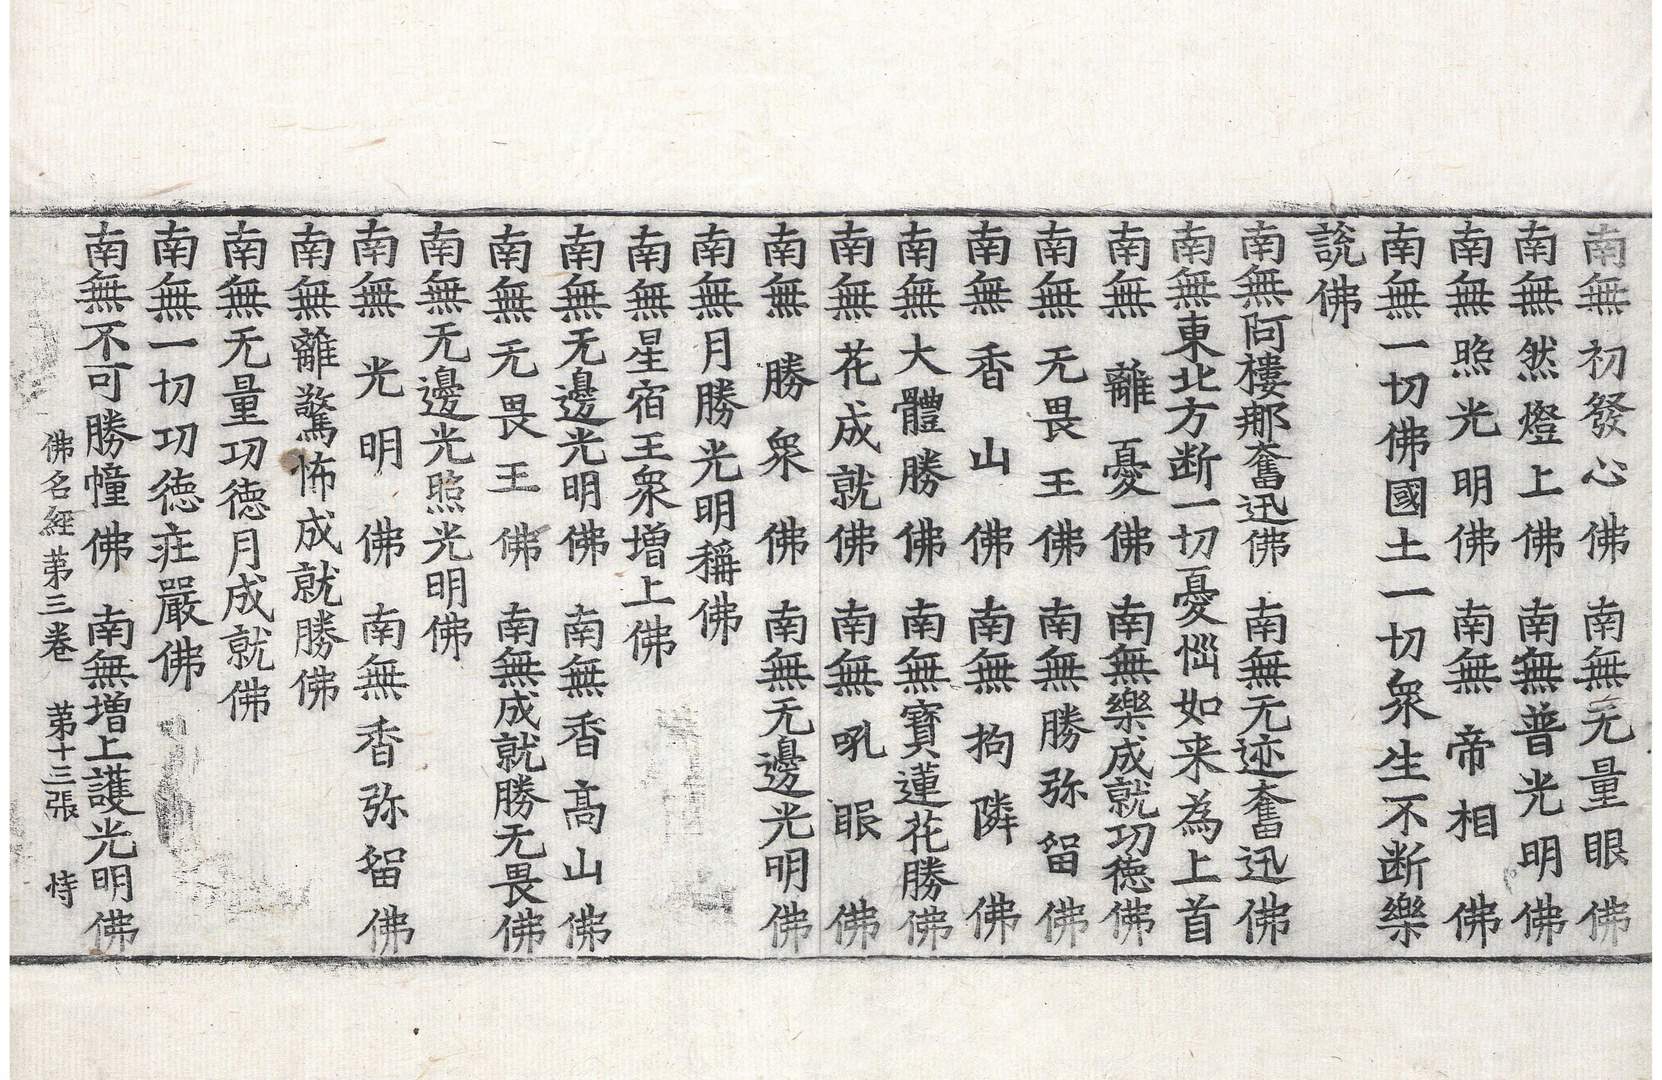 南無初發心佛　南無无量眼佛
南無然燈上佛　南無普光明佛
南無照光明佛　南無帝相佛
南無一切佛國土一切衆生不断樂
說佛
南無阿樓那奮迅佛　南無无迹奮迅佛
南無東北方断一切憂惱如来為上首
南無離憂佛　南無樂成就功徳佛
南無无畏王佛　南無勝弥留佛
南無香山佛　南無拘隣佛
南無大體勝佛　南無寳蓮花勝佛
南無花成就佛　南無吼眼佛
南無勝衆佛　南無无邊光明佛
南無月勝光明稱佛
南無星宿王衆増上佛
南無无邊光明佛　南無香高山佛
南無无畏王佛　南無成就勝无畏佛
南無无邊光照光明佛
南無光明佛　南無香弥留佛
南無離驚怖成就勝佛
南無无量功徳月成就佛
南無一切功徳莊嚴佛
南無不可勝幢佛　南無増上護光明佛
佛名經苐三卷　苐十三張　恃